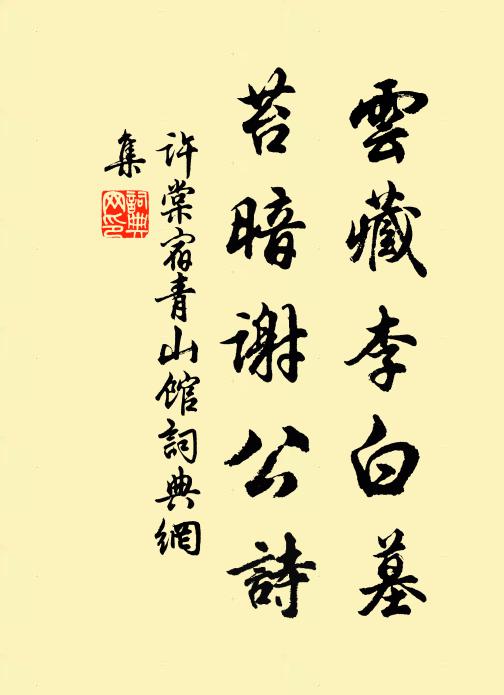 雲藏李白墓
苔暗謝公詩
許棠宿青山館詞典網
集
詞典
网印